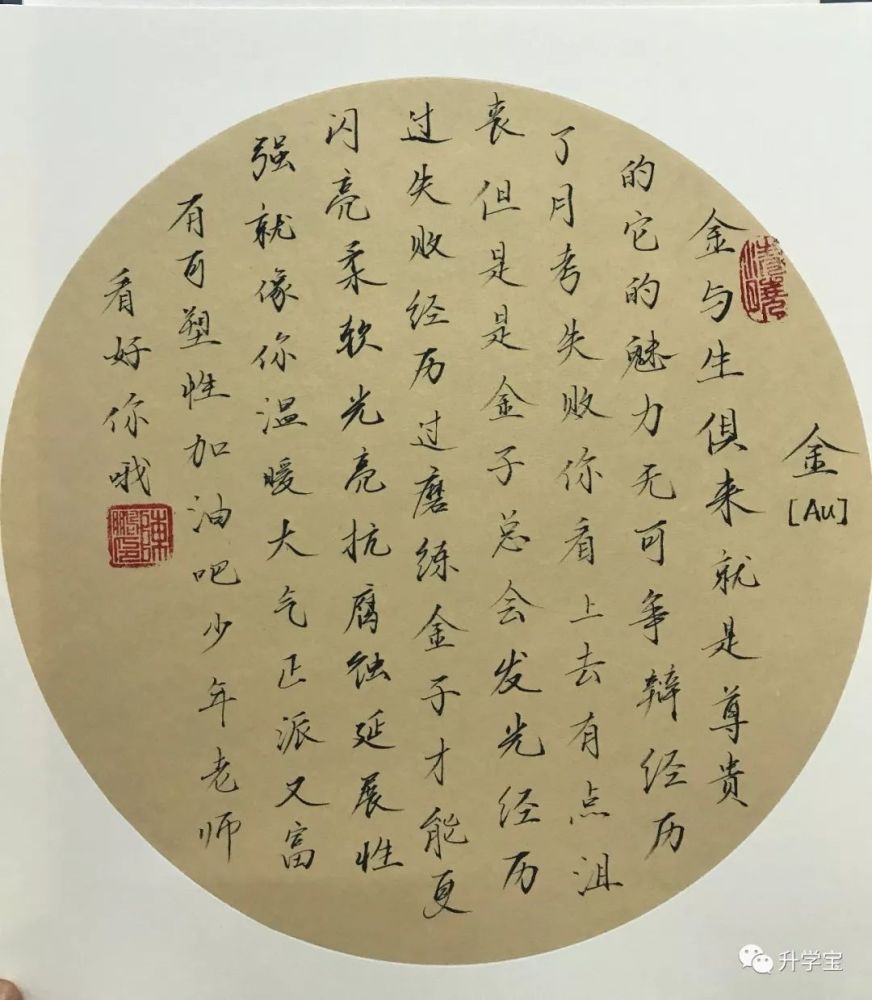 金
[Au]
清曉
金与生俱来就是尊贵
的它的魅力无可争辩经历
了月考失败你看上去有点沮
丧但是是金子总会发光经历
过失败经历过磨练金子才能更
闪亮柔软光亮抗腐蚀延展性
强就像你温暖大气正派又富
有可塑性加油吧少年老师
看好你哦
升学宝